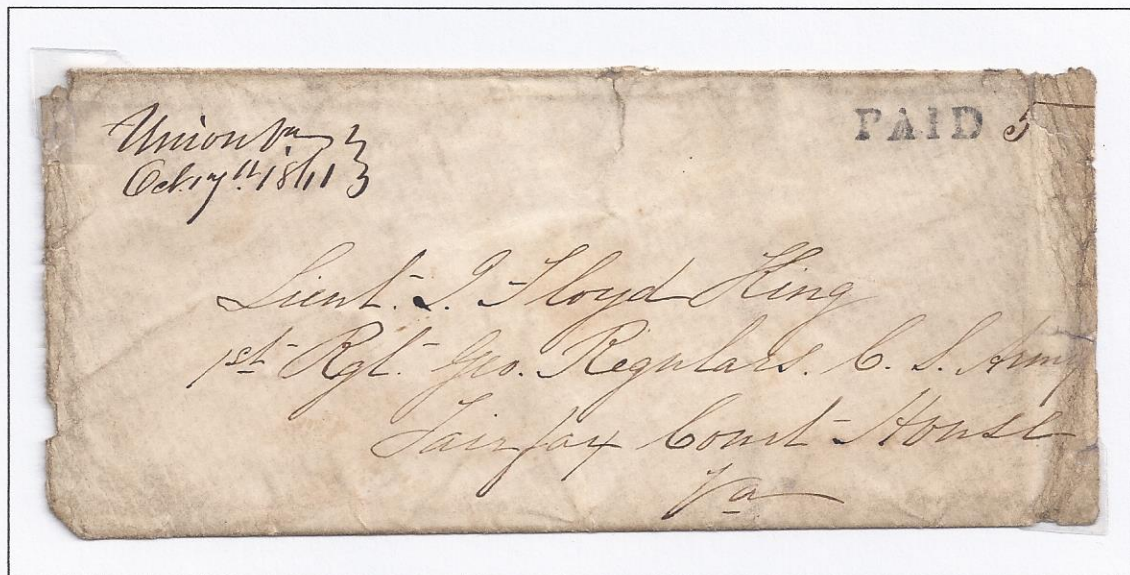 Union Va
Oct 17th 1861
PAID 5
Lieut. J. Floyd King
1st Rgt. Geo. Regulars. C. S. Army
Fairfax Court House
Va